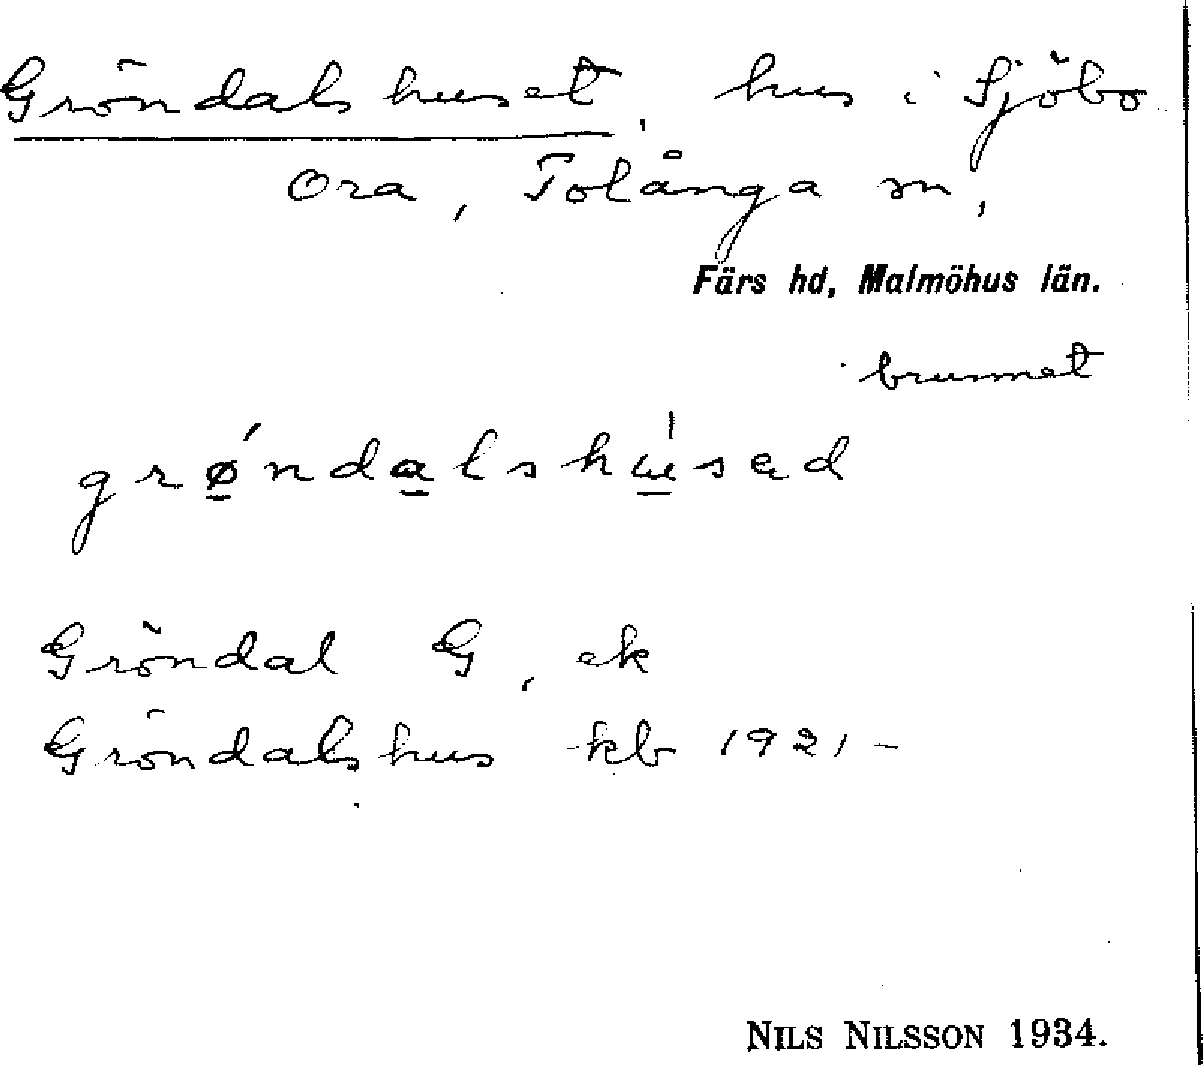 Gröndalshuset, hus i Sjöbo
Ora, Tolånga sn,
Färs hd, Malmöhus län.
brunnet
grǿndalshúsad
Gröndal G, ek
Gröndalshus kb 1921-
NILS NILSSON 1934.